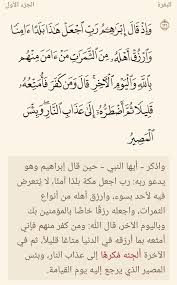 البقرة
الجزء الأول
وَإِذْ قَالَ إِبْرَٰهِـۧمُ رَبِّ ٱجْعَلْ هَٰذَا بَلَدًا ءَامِنًا
وَٱرْزُقْ أَهْلَهُۥ مِنَ ٱلثَّمَرَٰتِ مَنْ ءَامَنَ مِنْهُم
بِٱللَّهِ وَٱلْيَوْمِ ٱلْـَٔاخِرِ ۖ قَالَ وَمَن كَفَرَ فَأُمَتِّعُهُۥ
قَلِيلًا ثُمَّ أَضْطَرُّهُۥٓ إِلَىٰ عَذَابِ ٱلنَّارِ ۖ وَبِئْسَ
ٱلْمَصِيرُ
واذكر - أيها النبي - حين قال إبراهيم وهو
يدعو ربه: رب اجعل مكة بلدًا آمنًا، لا يُتعرض
فيه لأحد بسوء، وارزق أهله من أنواع
الثمرات، واجعله رزقًا خاصًّا بالمؤمنين بك
وباليوم الآخر، قال الله: ومن كفر منهم فإني
أمتعه بما أرزقه في الدنيا متاعًا قليلاً، ثم في
الآخرة ألجئه مُكرهًا إلى عذاب النار، وبئس
المصير الذي يرجع إليه يوم القيامة.